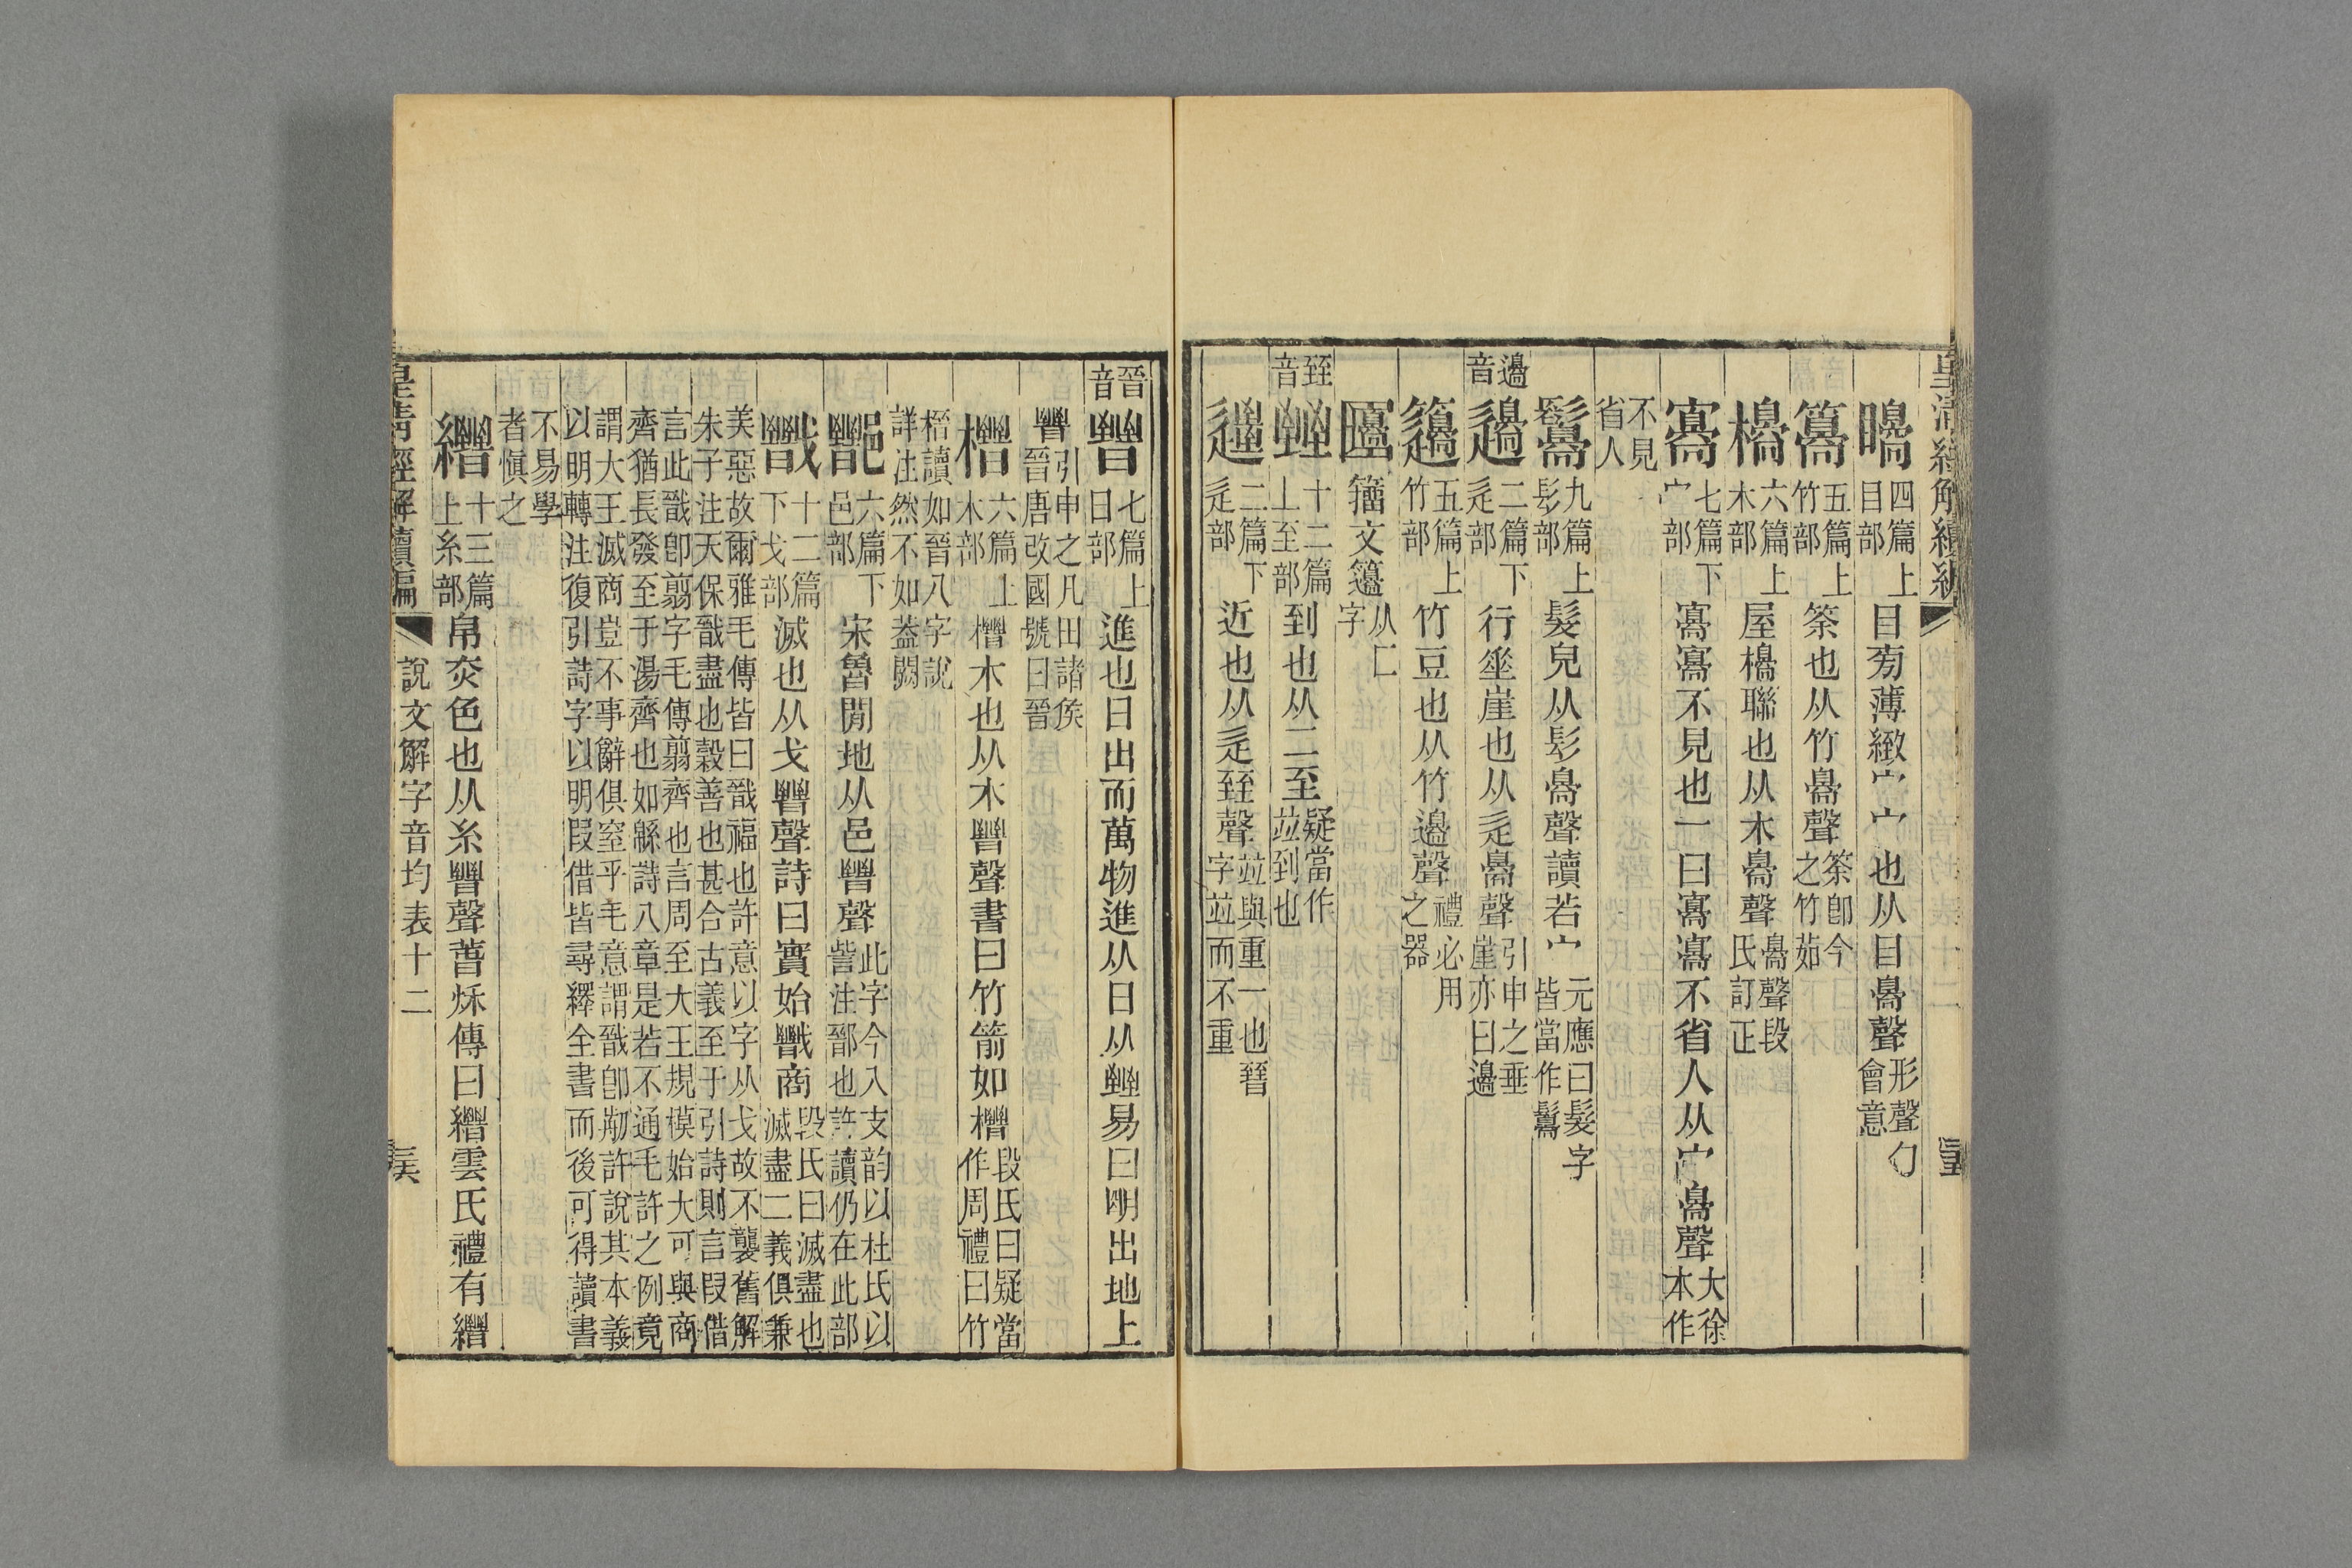 皇清經解續編
矏四篇上目部目旁薄緻宀宀也从目臱聲形聲勹會意
籩五篇上竹部筡也从竹臱聲筡卽今之竹茹
櫋六篇上木部屋櫋聯也从木臱聲臱聲段氏訂正
寡七篇下宀部不見也一曰不省人从宀臱聲大徐本作
不見省人
鬗九篇上髟部髮皃从髟臱聲讀若宀元應曰髮字皆當作
邊音邊二篇下辵部行垂崖也从辵臱聲引申之垂崖亦曰邊
籩五篇上竹部竹豆也从竹邊聲禮必用之器
籒文籩从匚字
臸音臸十二篇上至部到也从二至疑當作並到也
二篇下辵部近也从辵臸聲並與重一也晉字並而不重
晉音七篇上日部進也日出而萬物進从日从臸易曰明出地上
引申之凡田諸侯晉唐改國號曰晉
榗六篇上木部榗木也从木晉聲書曰竹箭如榗段氏曰疑當作周禮曰竹
榗讀如晉八字說詳注然不如葢闕
六篇下邑部宋魯閒地从邑晉聲此字今入支韵以杜氏以訾注鄑也許讀仍在此部
戩十二篇下戈部滅也从戈晉聲詩曰實始戩商段氏曰滅盡也滅盡二義俱兼
美惡故爾雅毛傳皆曰戩福也許意以字从戈故不襲舊解朱子注天保戩盡也穀善也甚合古義至于引詩則言叚借
言此戩卽翦字毛傳翦齊也言周至大王規模始大可與商齊猶長發至于湯齊也如緜詩八章是若不通毛許之例竟
謂大王滅商豈不事辭俱窒乎毛意謂戩卽㓨許說其本義以明轉注復引詩字以明叚借皆尋繹全書而後可得讀書
不易學者愼之
縉十三篇上糸部帛赤色也从糸晉聲春秋傳曰縉雲氏禮有縉
皇清經解續編
說文解字音均表十二